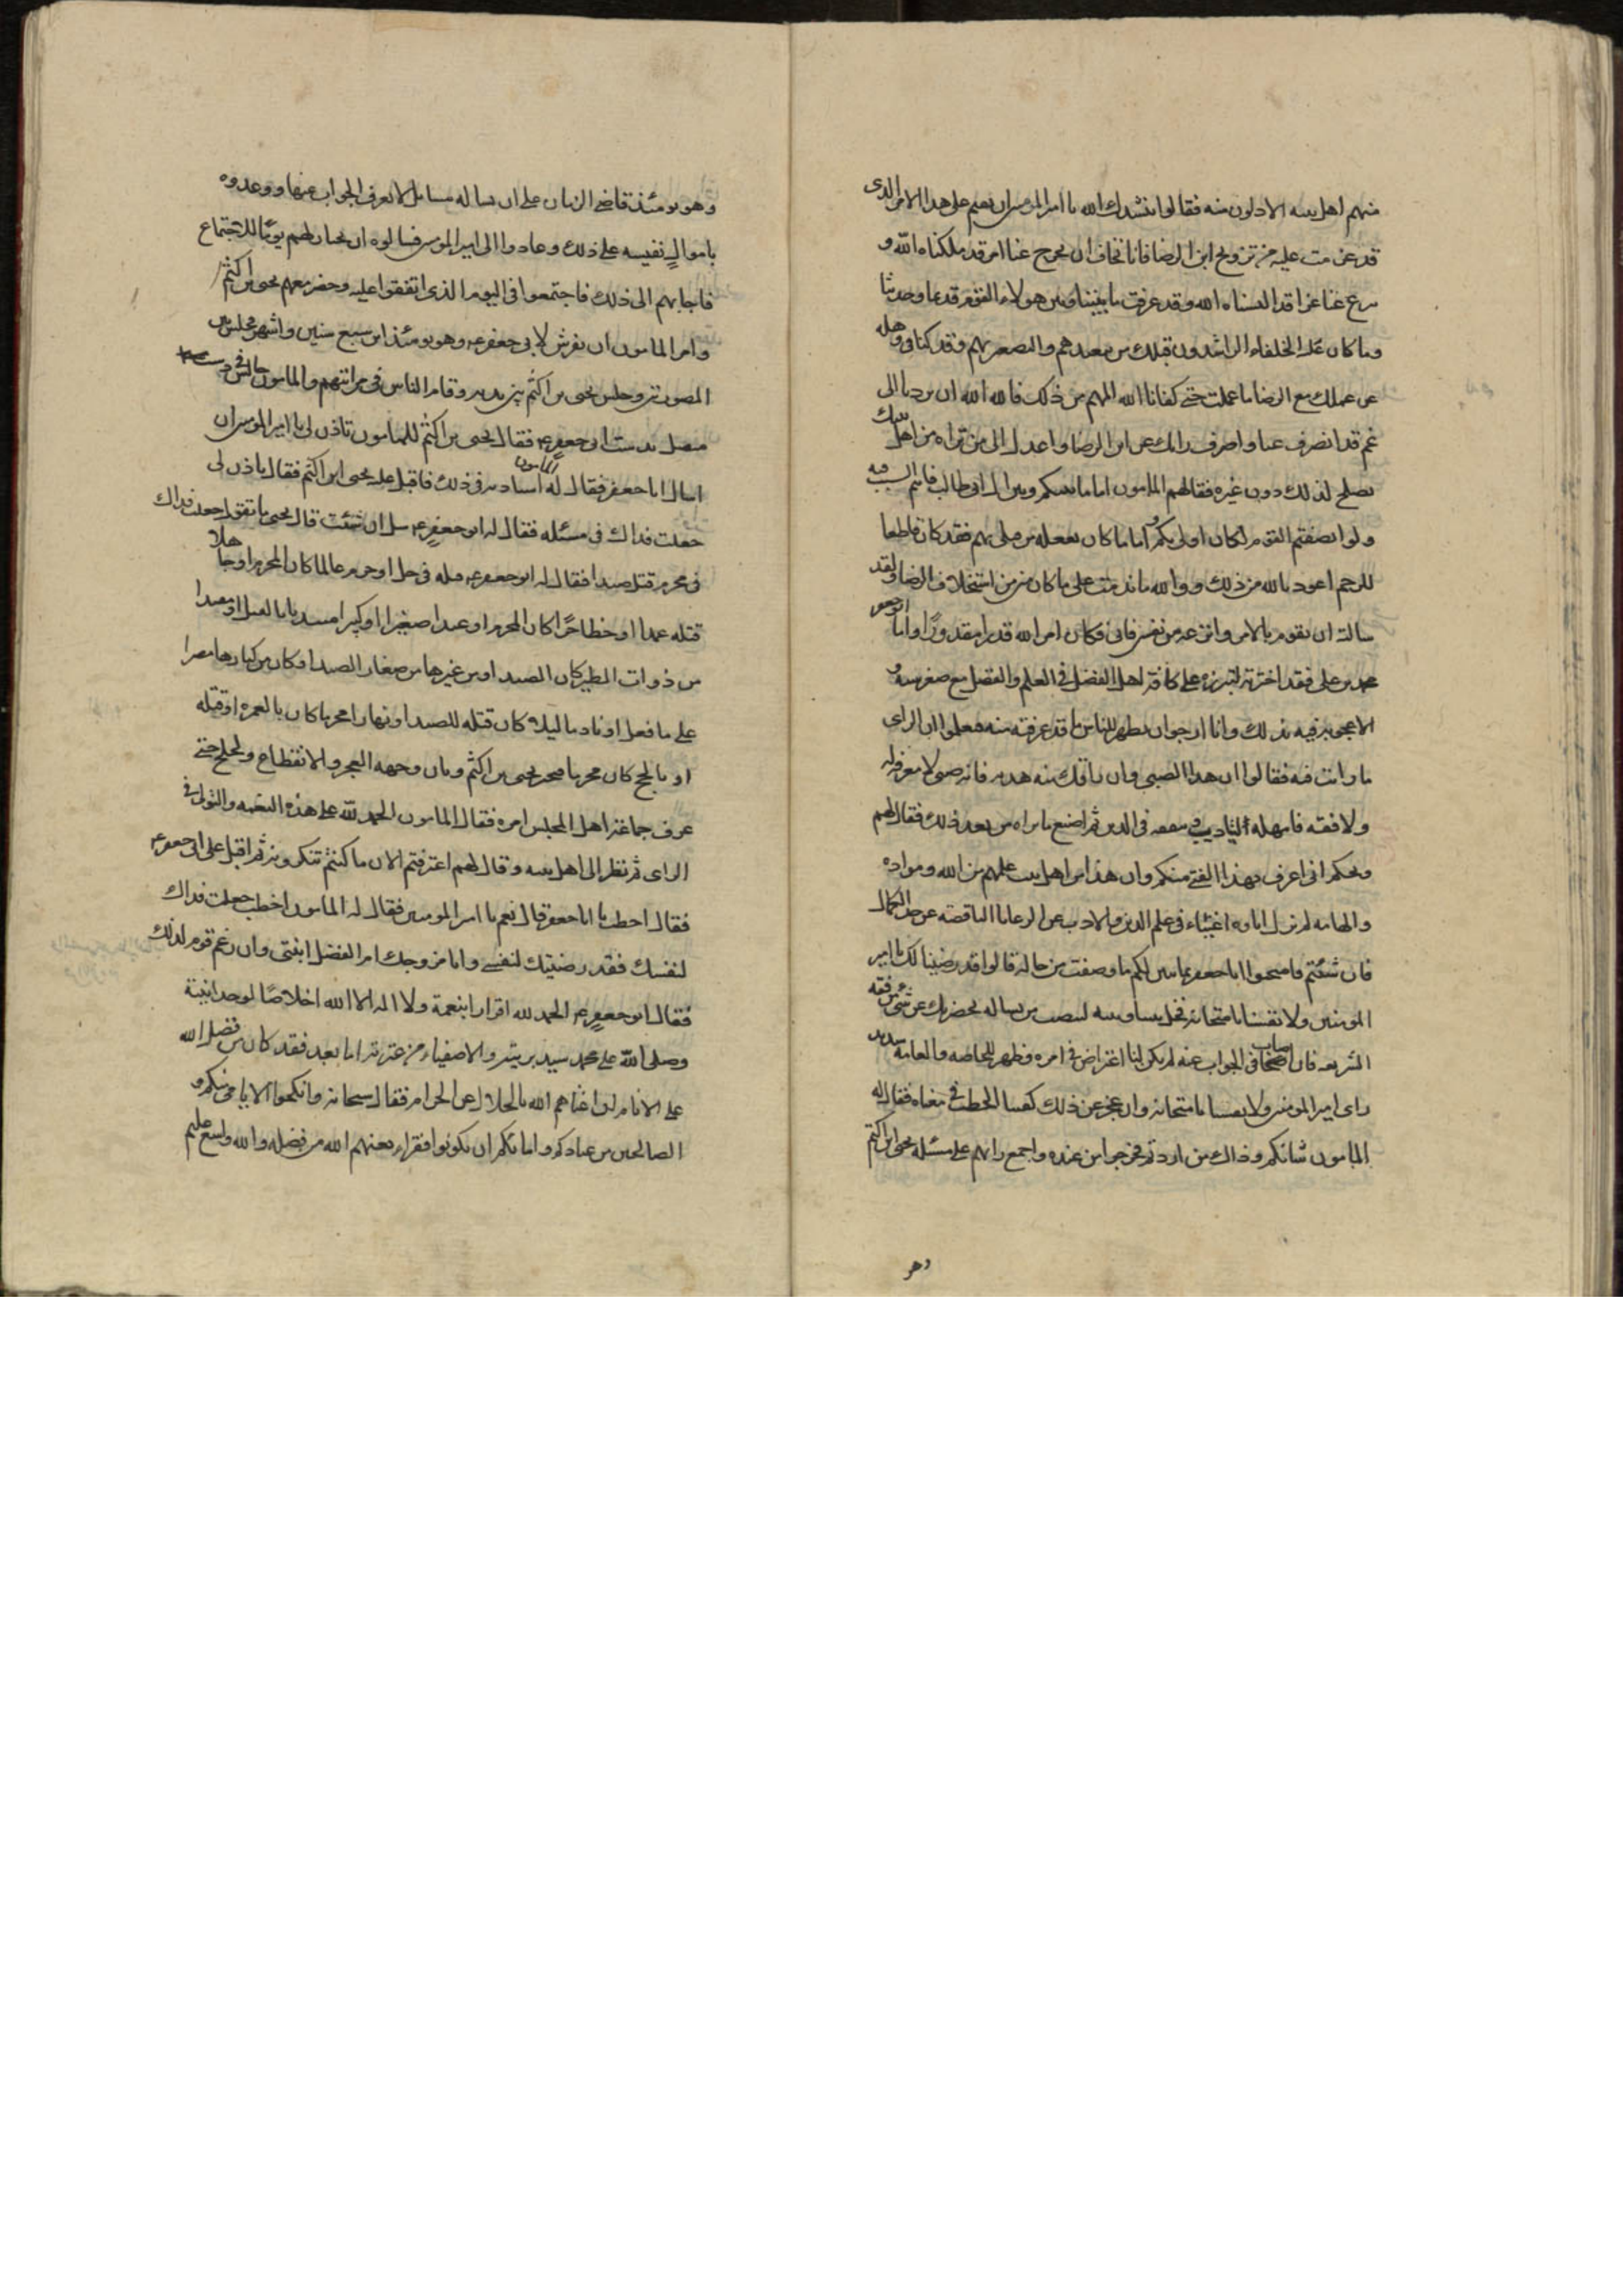 منهم اهل بيته الادنون منه فقالوا ننشدك الله يا امير المؤمنين ان تقيم على هذا الامر الذى
قد عزمت عليه من تزويج ابن الرضا فانا نخاف ان يخرج عنا امر قد ملكناه الله و
ينزع عنا عزا قد البسناه الله وقد عرفت ما بيننا وبين هولاء القوم قديما وحديثا
وما كان عليه الخلفاء الراشدون قبلك من تبعيدهم والتصغير بهم وقد كنا فى وهله
من عملك مع الرضا ما عملت حتى كفانا الله المهم من ذلك فالله الله ان تردنا الى
غم قد انصرف عنا واصرف رايك عن ابن الرضا واعدل الى من تراه من اهل بيتك
يصلح لذلك دون غيره فقال لهم المامون اما ما بينكم وبين ال ابى طالب فانتم السبب فيه
ولو انصفتم القوم لكان اولى بكم واما ما كان يفعله من قبلى بهم فقد كان قاطعا
للرحم اعوذ بالله من ذلك ووالله ما ندمت على ما كان منى من استخلاف الرضا ولقد
سالته ان يقوم بالامر وانزعه من نفسى فابى وكان امر الله قدرا مقدورًا واما ابو جعفر
محمد بن على فقد اخترته لتبرزه على كافة اهل الفضل فى العلم والفضل مع صغر سنه و
الاعجوبة فيه بذلك وانا ارجو ان يظهر للناس ما قد عرفته منه فيعلموا ان الراى
ما رايت فيه فقالوا ان هذا الصبى وان راقك منه هديه فانه صبى لا معرفة له
ولا فقه فامهله ليتادب ويتفقه فى الدين ثم اصنع ما تراه من بعد ذلك فقال لهم
ويحكم انى اعرف بهذا الفتى منكم وان هذا من اهل بيت علمهم من الله ومواده
والهامه لم يزل اباوه اغنياء فى علم الدين والادب عن الرعايا الناقصة عن حد الكمال
فان شئتم فامتحنوا ابا جعفر بما يتبين لكم ما وصفت من حاله قالوا قد رضينا لك يا امير
المومنين ولانفسنا بامتحانه فخل بيننا وبينه لننصب من يساله بحضرتك عن شئ من فقه
الشريعه فان اصاب فى الجواب عنه لم يكن لنا اعتراض فى امره وظهر للخاصه والعامة سديد
راى امير المومنين ولانفسنا بامتحانه وان عجز عن ذلك كفينا الخطب فى معناه فقال له
المامون شانكم وذاك متى اردتم فخرجوا من عنده واجمع رايهم على مسئلة يحيى ابن اكثم
وهو
وهو يومئذ قاضى الزمان على ان يساله مسايل لا يعرف الجواب عنها ووعدوه
باموال نفيسه على ذلك وعادوا الى امير المومنين فسالوه ان يختار لهم يومًا للاجتماع
فاجابهم الى ذلك فاجتمعوا فى اليوم الذى اتفقوا عليه وحضر معهم يحيى بن اكثم
وامر المامون ان يفرش لابى جعفر ع وهو يومئذ ابن سبع سنين واشهر فجلس بين
المصورتين وجلس يحيى بن اكثم بين يديه وقام الناس فى مراتبهم والمامون جالس فى دست
متصل بدست ابى جعفر ع فقال يحيى بن اكثم للمامون تاذن لى يا امير المومنين ان
اسال ابا جعفر فقال له المامون استاذنه فى ذلك فاقبل عليه يحيى ابن اكثم فقال تاذن لى
جعلت فداك فى مسئله فقال له ابو جعفر ع سل ان شئت قال يحيى ما تقول جعلت فداك
فى محرم قتل صيدا فقال له ابو جعفر ع قتله فى حل او حرم عالما كان المحرم او جاهلا
قتله عمدا او خطا حرًا كان المحرم او عبدا صغيرا او كبيرا مبتديا بالقتل او معيدا
من ذوات الطير كان الصيد او من غيرها من صغار الصيد او كان من كبارها مصرا
على ما فعل او نادما ليلا كان قتله للصيد او نهارا محرما كان بالعمرة او قتله
او بالحج كان محرما فتحير يحيى بن اكثم وبان وجهه العجز والانقطاع ولجلج حتى
عرف جماعة اهل المجلس امره فقال المامون الحمد لله على هذه النعمه والتوفيق فى
الراى ثم نظر الى اهل بيته وقال لهم اعترفتم الان ما كنتم تنكرونه ثم اقبل على ابى جعفر ع
فقال اخطب يا ابا جعفر قال نعم يا امير المومنين فقال له المامون اخطب جعلت فداك
لنفسك فقد رضيتك لنفسى وانا مزوجك ام الفضل ابنتى وان رغم قوم لذلك
فقال ابو جعفر ع الحمد لله اقرارا بنعمة ولا اله الا الله اخلاصًا لوحدانيتة
وصلى الله على محمد سيد بريته والاصفياء من عترته اما بعد فقد كان من فضل الله
على الانام ان اغناهم الله بالحلال عن الحرام فقال سبحانه وانكحوا الايامى منكم و
الصالحين من عبادكم وامائكم ان يكونوا فقراء يغنهم الله من فضله والله واسع عليم